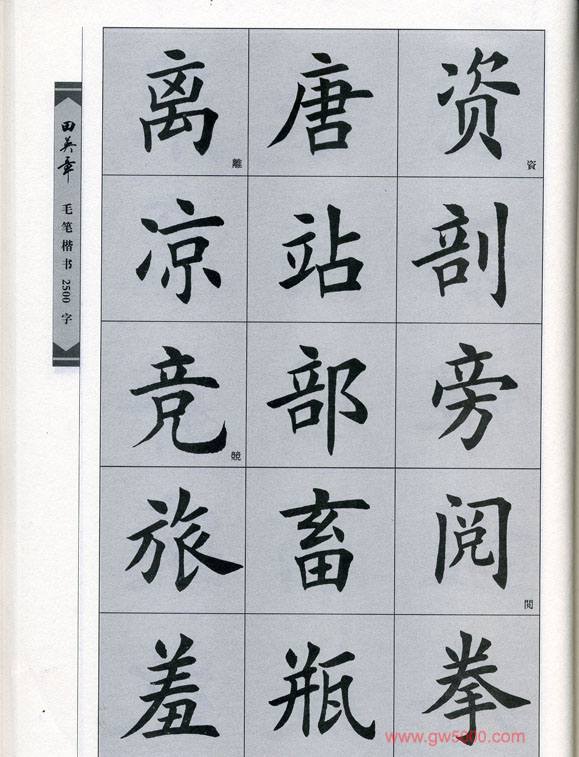 田英章 毛笔楷书2500字
离 離 唐 资 資
凉 站 剖
竞 競 部 旁
旅 畜 阅 閱
羞 瓶 拳
www.gw5000.com